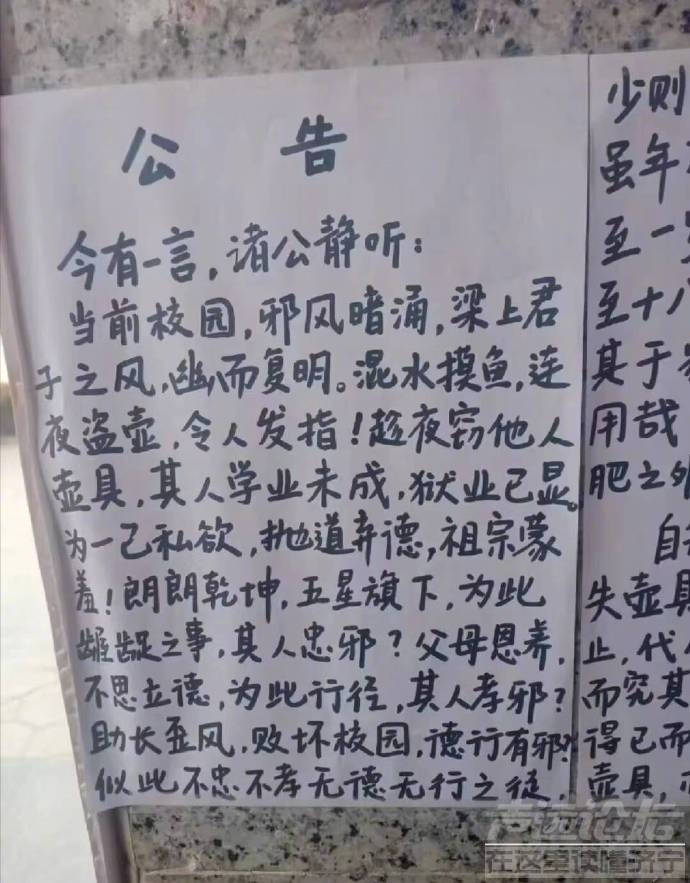 公告
今有一言，诸公静听：
当前校园，邪风暗涌，梁上君
子之风，幽而复明。混水摸鱼，连
夜盗壶，令人发指！趁夜窃他人
壶具，其人学业未成，狱业已显。
为一己私欲，抛道弃德，祖宗蒙
羞！朗朗乾坤，五星旗下，为此
龌龊之事，其人忠邪？父母恩养，
不思立德，为此行径，其人孝邪？
助长歪风，败坏校园，德行有邪？
似此不忠不孝无德无行之徒，
少则
虽年
至一
至十八
其于
用哉
肥之外
自
失壶具
止，代
而究其
得已而
壶具，
在这里读懂济宁